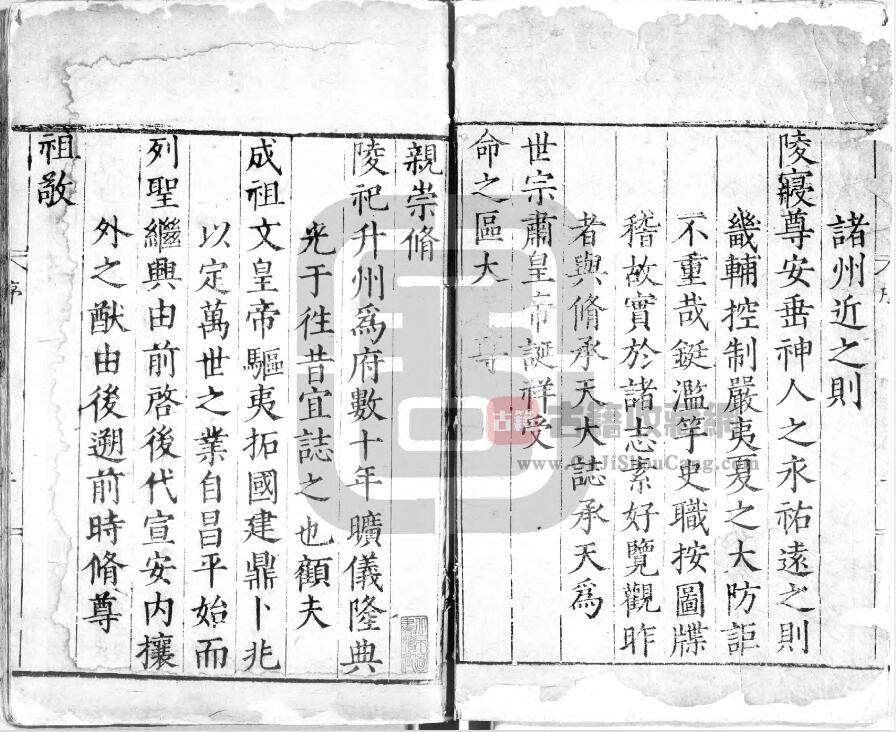 諸州近之則
陵寢尊安垂神人之永祐遠之則
畿輔控制嚴夷夏之大防詎
不重哉鋌濫竽史職按圖牒
稽故實於諸志素好覽觀昨
者與脩承天大誌承天為
世宗肅皇帝誕祥受
命之區大
尊
親崇脩
陵祀升州為府數十年曠儀隆典
光于徃昔宜誌之也顧夫
成祖文皇帝驅夷拓國建鼎卜兆
以定萬世之業自昌平始而
列聖繼興由前啓後代宣安內攘
外之猷由後遡前時脩尊
祖敬
序
序
古籍
古籍收藏網
www.GuJiShouCang.com